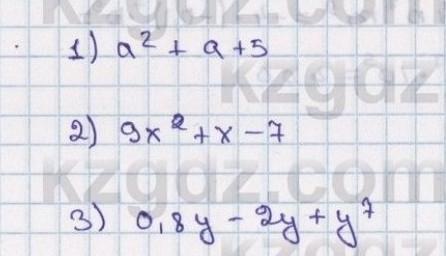 kzgdz.com
1) a² + a + 5
kzgdz
2) 9x² + x - 7
kzgdz.com
3) 0,8y - 2y + y⁷
kzgdz